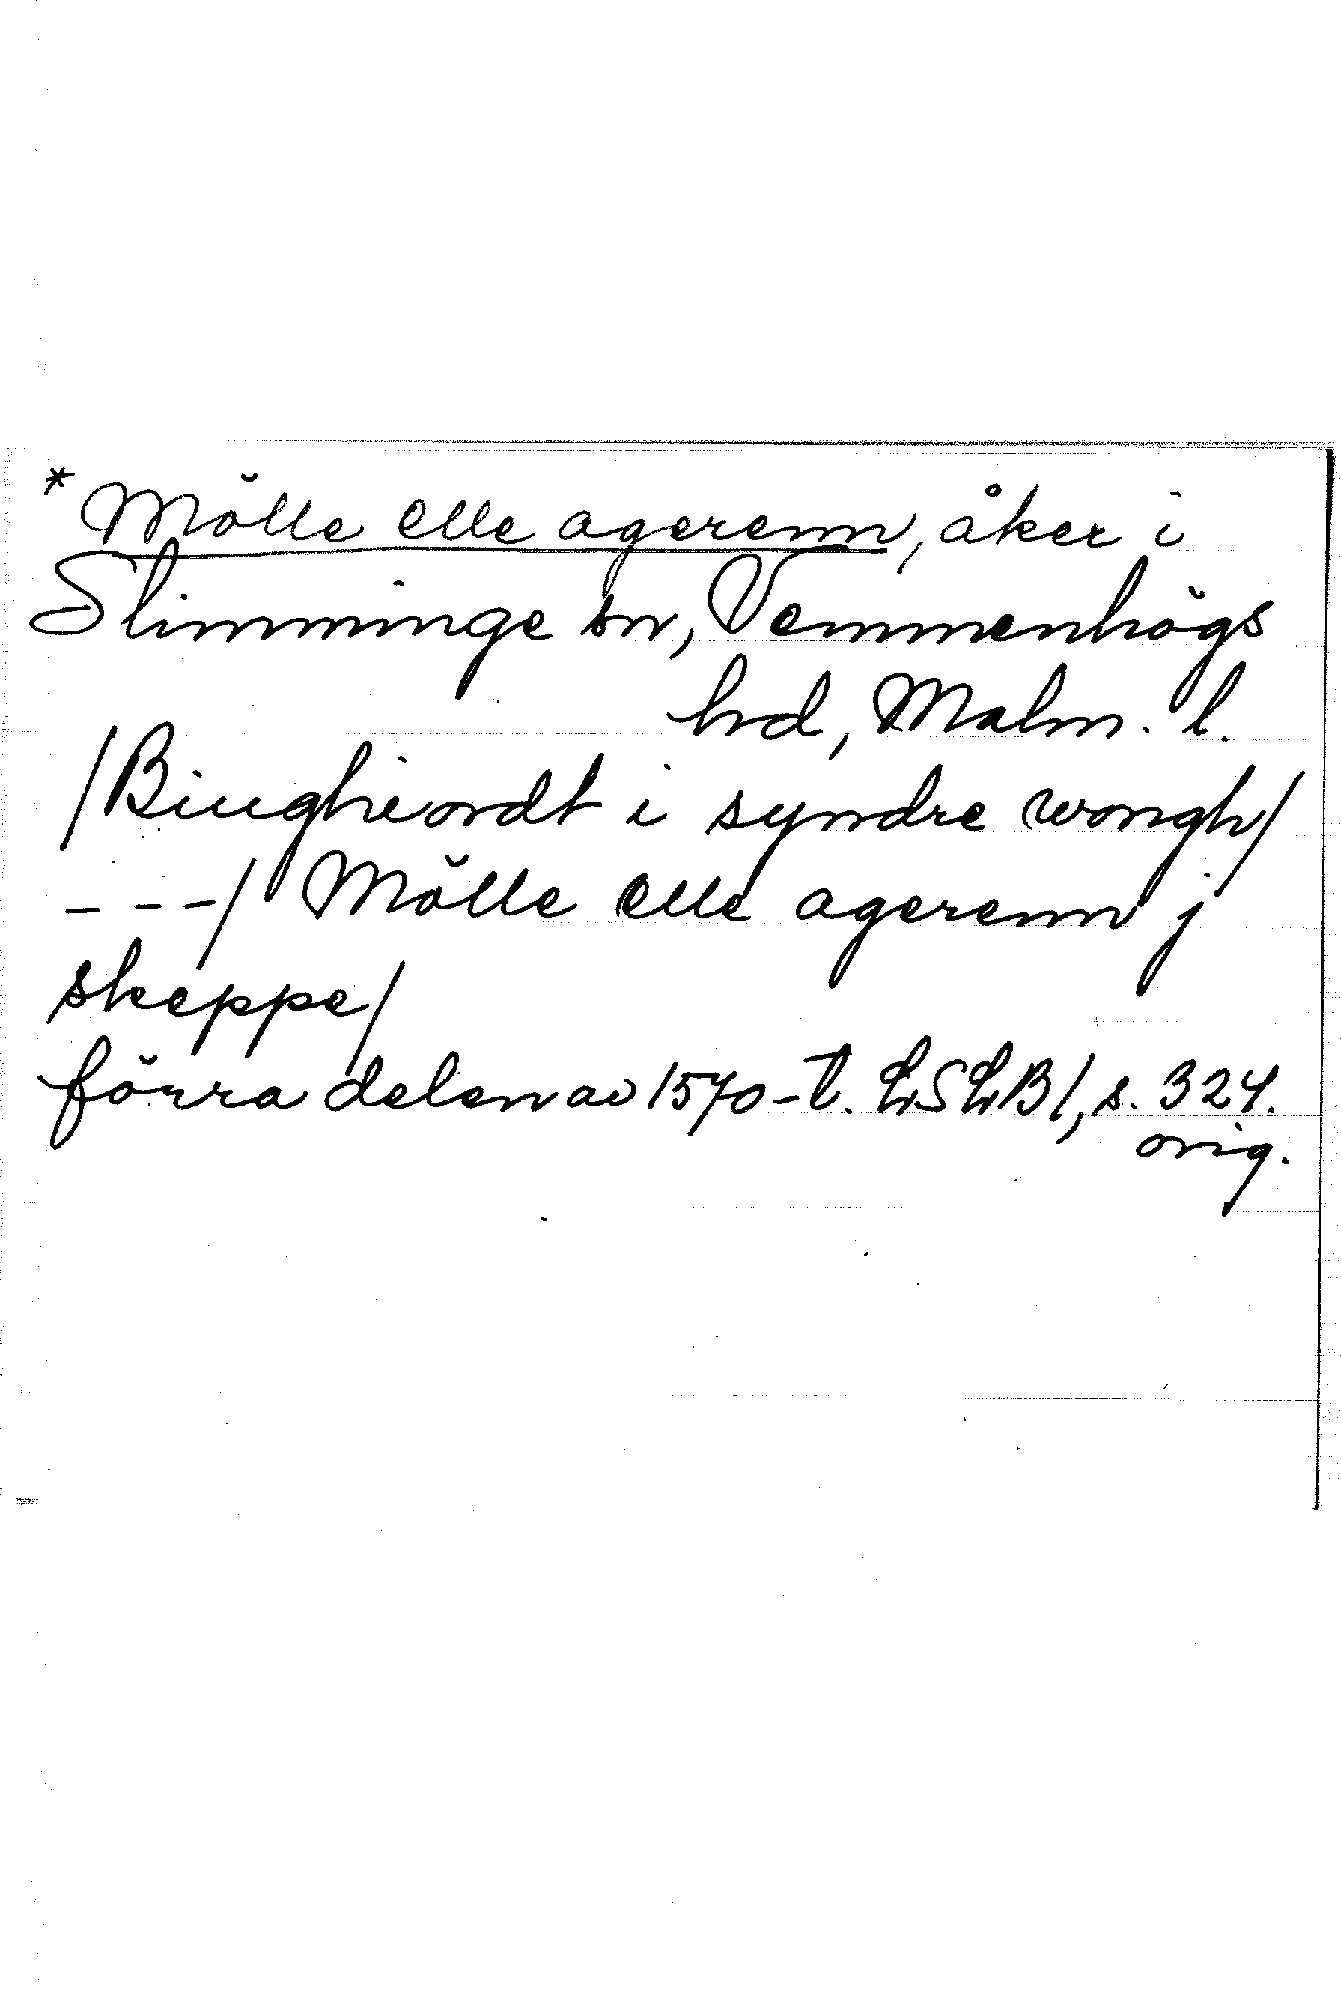 *Mölle elle agerenn, åker i
Slimminge sn, Vemmenhögs
hd, Malm. l.
/Biugheordt i syndre wongh/
---/ Mölle elle agerenn j
skeppe/
förra delen av 1570-t. LSLB1, s. 324.
orig.